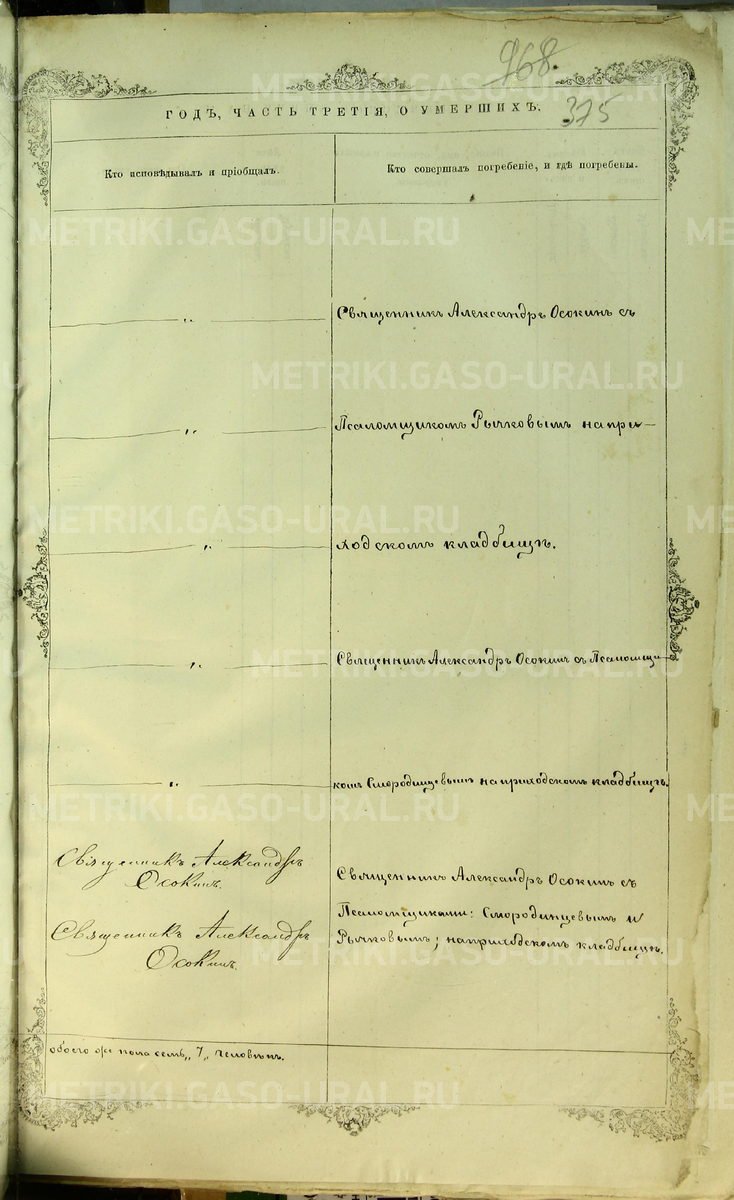 968.
375
ГОДЪ, ЧАСТЬ ТРЕТІЯ, О УМЕРШИХЪ.
Кто исповѣдывалъ и пріобщалъ.
Кто совершалъ погребеніе, и гдѣ погребены.
— „ —
Священникъ Александръ Осокинъ съ
— „ —
Псаломщикомъ Рычковымъ на при-
— „ —
ходскомъ кладбищѣ.
— „ —
Священникъ Александръ Осокинъ съ Псаломщи-
— „ —
комъ Смородинцевымъ на приходскомъ кладбищѣ.
Священникъ Александръ
Осокинъ.
Священникъ Александръ
Осокинъ.
Священникъ Александръ Осокинъ съ
Псаломщиками: Смородинцевымъ и
Рычковымъ; на приходскомъ кладбищѣ.
обоего же пола семь „7„ человѣкъ.
METRIKI.GASO-URAL.RU